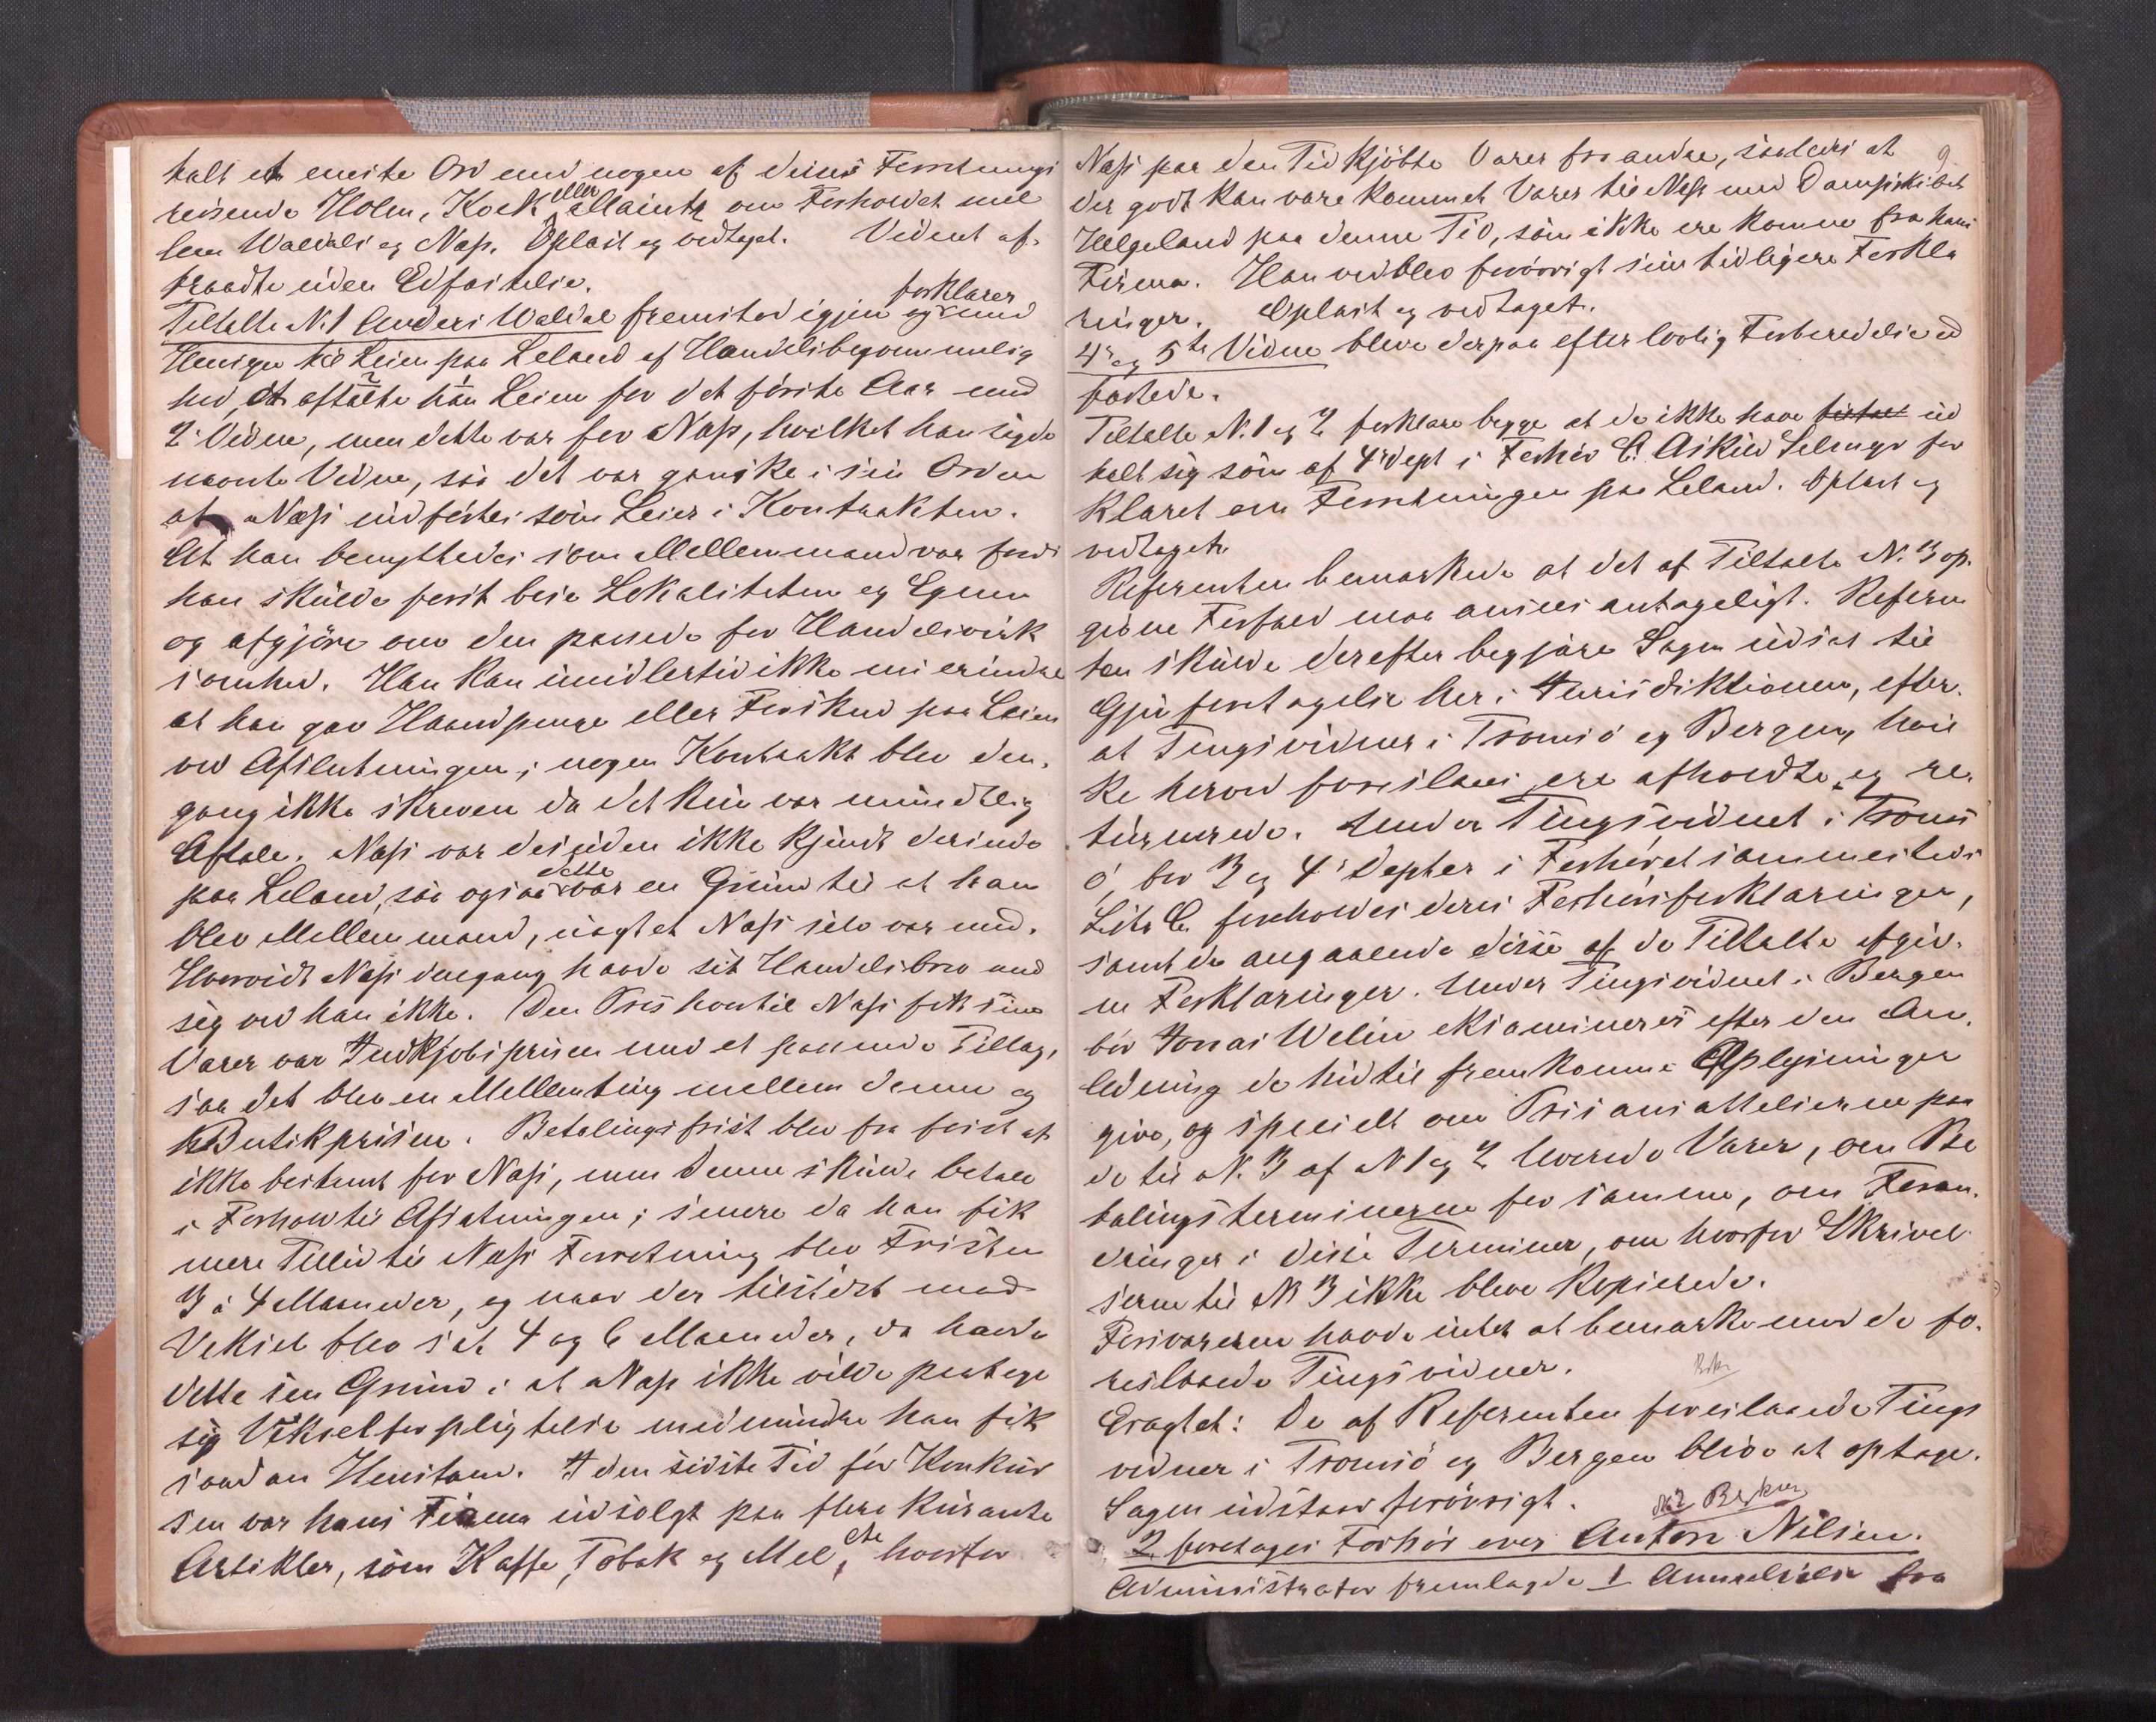 talt et eneste Ord med nogen af disses Forretnings
reisende Holm, Koek eller Maintz om Forholdet mel
lem Waldals og Næss. Oplæst og vedtaget. Vidnet af-
traadte uden Edfæstelse.
Tiltalte N. 1 Anders Waldal fremstod igjen og forklarer med
Hensyn til Leien paa Leland af Handelsbeqvemmelig
hed, at aftalte han Leien for det første Aar med
2 Vidne, men dette var for Næss, hvilket han sagde
nævnte Vidne, saa det var ganske i sin Orden
at Næss indføstes som Leier i Kontrakten.
At han benyttedes som Mellemmand var fordi
han skulde først bese Lokaliteten og Egnen
og afgjøre om den passede for Handelsvirk
somhed. Han kan imidlertid ikke mi erindre
at han gav Haandpenge eller Forskud paa Leien
ved Afslutningen; nogen Kontrakt blev den-
gang ikke skreven da det kun var mundtlig
Aftale. Næss var desuden ikke kjendt derinde
paa Leland, saa ogsaa dette var en Grund til at han
blev Mellemmand, uagtet Næss selv var med.
Hvorvidt Næss dengang havde sit Handelsbrev med
sig ved han ikke. Den Pris hvortil Næss fik sine
Varer var Indkjøbsprisen med et passende Tillæg,
saa det blev en Mellemting mellem denne og
Butikprisen. Betalingsfrist blev fra først af
ikke bestemt for Næss, men denne skulde betale
i Forhold til Afsætningen; senere da han fik
mere Tillid til Næss Forretning blev Fristen
3 à 4 Maaneder, og naar der tilsidst med
Veksel blev sat 4 og 6 Maaneder, da havde
dette sin Grund i at Næss ikke vilde paatage
sig Vekselforpligtelse medmindre han fik
saadan Henstand. I den sidste Tid før Konkur
sen var hans Firma udsolgt paa flere kurante
Artikler, som Kaffe, Tobak og Mel, etc hvorfor
9.
Næss paa den Tid kjøbte Varer fra andre, saaledes at
der godt kan være kommet Varer til Næss med Dampskibet
Helgeland paa denne Tid, som ikke ere komne fra hans
Firma. Han vedblev forøvrigt sine tidligere Forkla
ringer. Oplæst og vedtaget.
4de og 5te Vidne bleve derpaa efter lovlig Forberedelse ed
fæstede.
Tiltalte N. 1 og 2 forklare begge at de ikke have ud
talt sig som af 4de Dept i Forhør C. forklaret
klaret om Forretningen paa Leland. Oplæst og
vedtaget.
Referenten bemærkede at det af Tiltalte N. 3 op-
givne Forfald maa ansees antageligt. Referen
ten skulde derefter begjære Sagen udsat til
Gjenforetagelse her i Jurisdiktionen, efter-
at Tingsvidner i Tromsø og Bergen, hvil
ke herved foreslaaes, ere afholdte og re-
turnerede. Under Tingsvidnet i Troms
ø, bør 3 og 4de Depter i Forhøret sammesteds
Litr C. foreholdes deres Forhørsforklaringer,
samt de angaaende disse af de Tiltalte afgiv-
ne Forklaringer. Under Tingsvidnet i Bergen
bør Jonas Welin eksamineres efter den An-
ledning de hidtil fremkomne Oplysninger
give, og specielt om Prisansættelserne paa
de til N. 3 af N 1 og 2 leverede Varer, om Be
talingsterminerne for samme, om Foran-
dringer i disse Terminer, om hvorfor Skrivel
serne til N 3 ikke bleve kopierede.
Forsvareren havde intet at bemærke med de fo-
reslaaede Tingsvidner.
Eragtet: De af Referenten foreslaaede Tings
vidner i Tromsø og Bergen blive at optage.
Sagen udstaar forøvrigt.
2. foretages Forhør over Anton Nilsen.
Administrator fremlagde 1 Anmeldelse fra